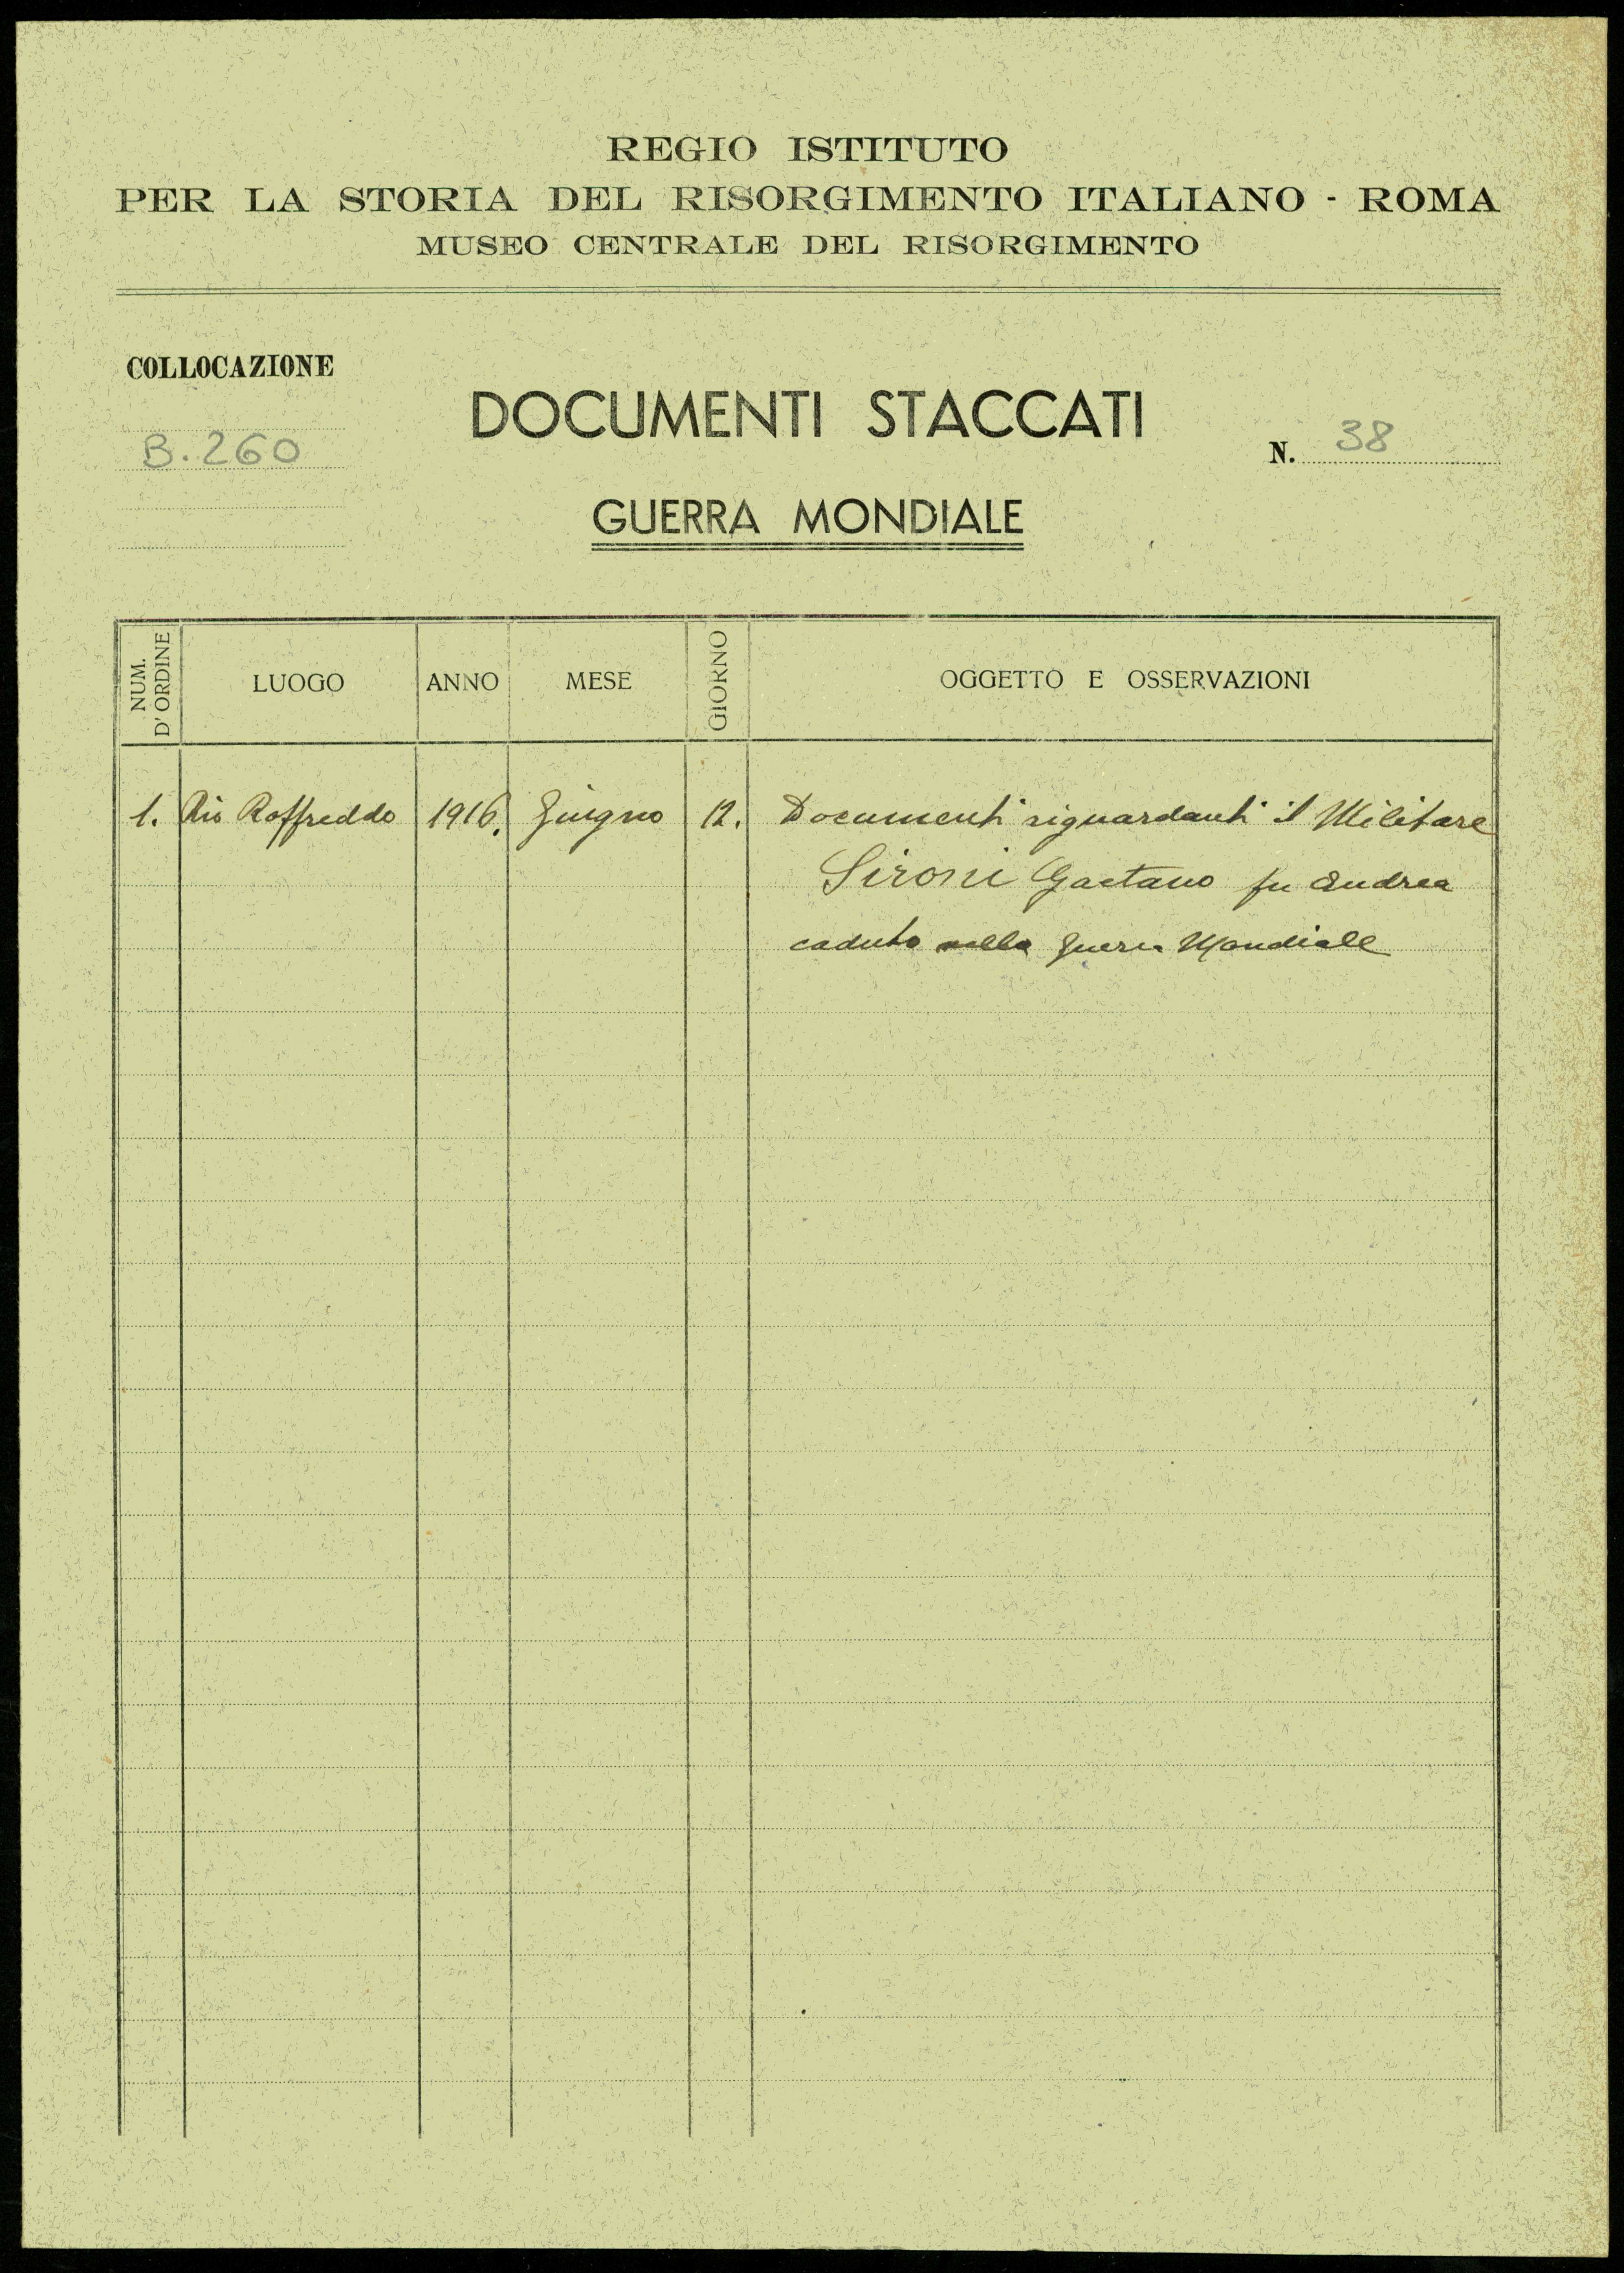 REGIO ISTITUTO
PER LA STORIA DEL RISORGIMENTO ITALIANO - ROMA
MUSEO CENTRALE DEL RISORGIMENTO
COLLOCAZIONE
B. 260
DOCUMENTI STACCATI
N. 38
GUERRA MONDIALE
NUM. D'ORDINE LUOGO ANNO MESE GIORNO OGGETTO E OSSERVAZIONI
1. Rio Roffreddo 1916. Giugno 12. Documenti riguardanti il Militare
Sironi Gaetano fu Andrea
caduto nella Guerra Mondiale